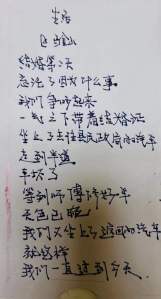 生活
结婚第二天
忘记了因为什么事
我们争吵起来
一气之下带着结婚证
坐上了去往县民政局的汽车
走到半道
车坏了
等到师傅修好车
天色已晚
我们又坐上了返回的汽车
就这样
我们一直过到今天